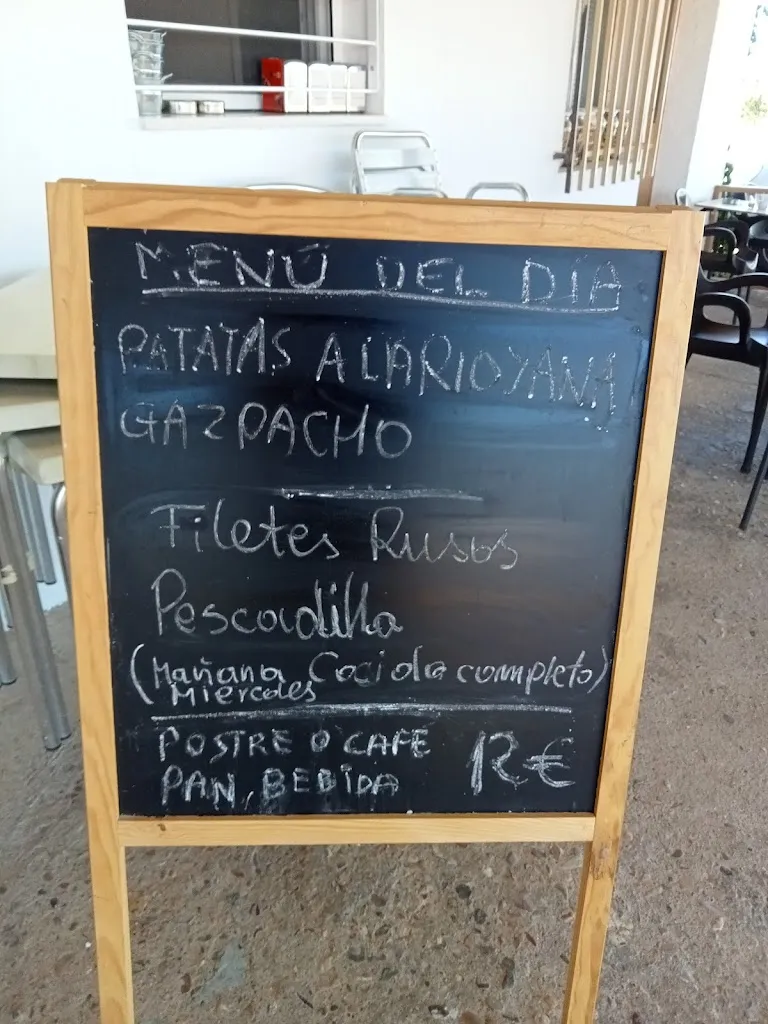 MENÚ DEL DÍA
PATATAS A LA RIOYANA
GAZPACHO
Filetes Rusos
Pescadilla
(Mañana Cocido completo)
Miercoles
POSTRE O CAFE 12€
PAN, BEBIDA